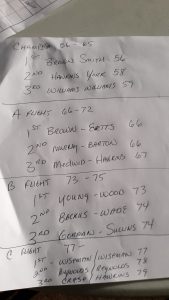 CHAMPION 56 - 65
1ST BROWN SMITH - 56
2ND HAWKINS YORK - 58
3RD WILLIAMS WILLIAMS 59
A FLIGHT 66-72
1ST BROWN - BETTS 66
2ND MURRAY - BARTON 66
3RD - HAWKINS 67
B FLIGHT 73 - 75
1ST YOUNG - WOOD 73
2ND BACKUS - WADE 74
3RD GERMAN - 74
C FLIGHT 77-
1ST - WISEMAN/WISEMAN 77
2ND REYNOLDS/REYNOLDS 78
3RD / HAWKINS 79